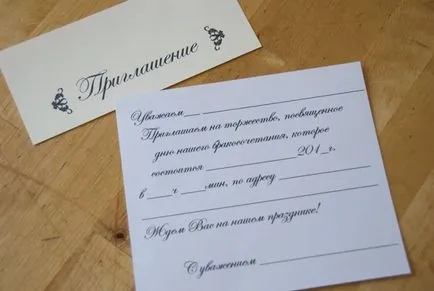 Приглашение
Уважаем___ ____________________
Приглашаем на торжество, посвященное
дню нашего бракосочетания, которое
состоится ______________ 201_г.
в ____ч ____мин, по адресу ______________
______________________________
Ждем Вас на нашем празднике!
С уважением ____________________